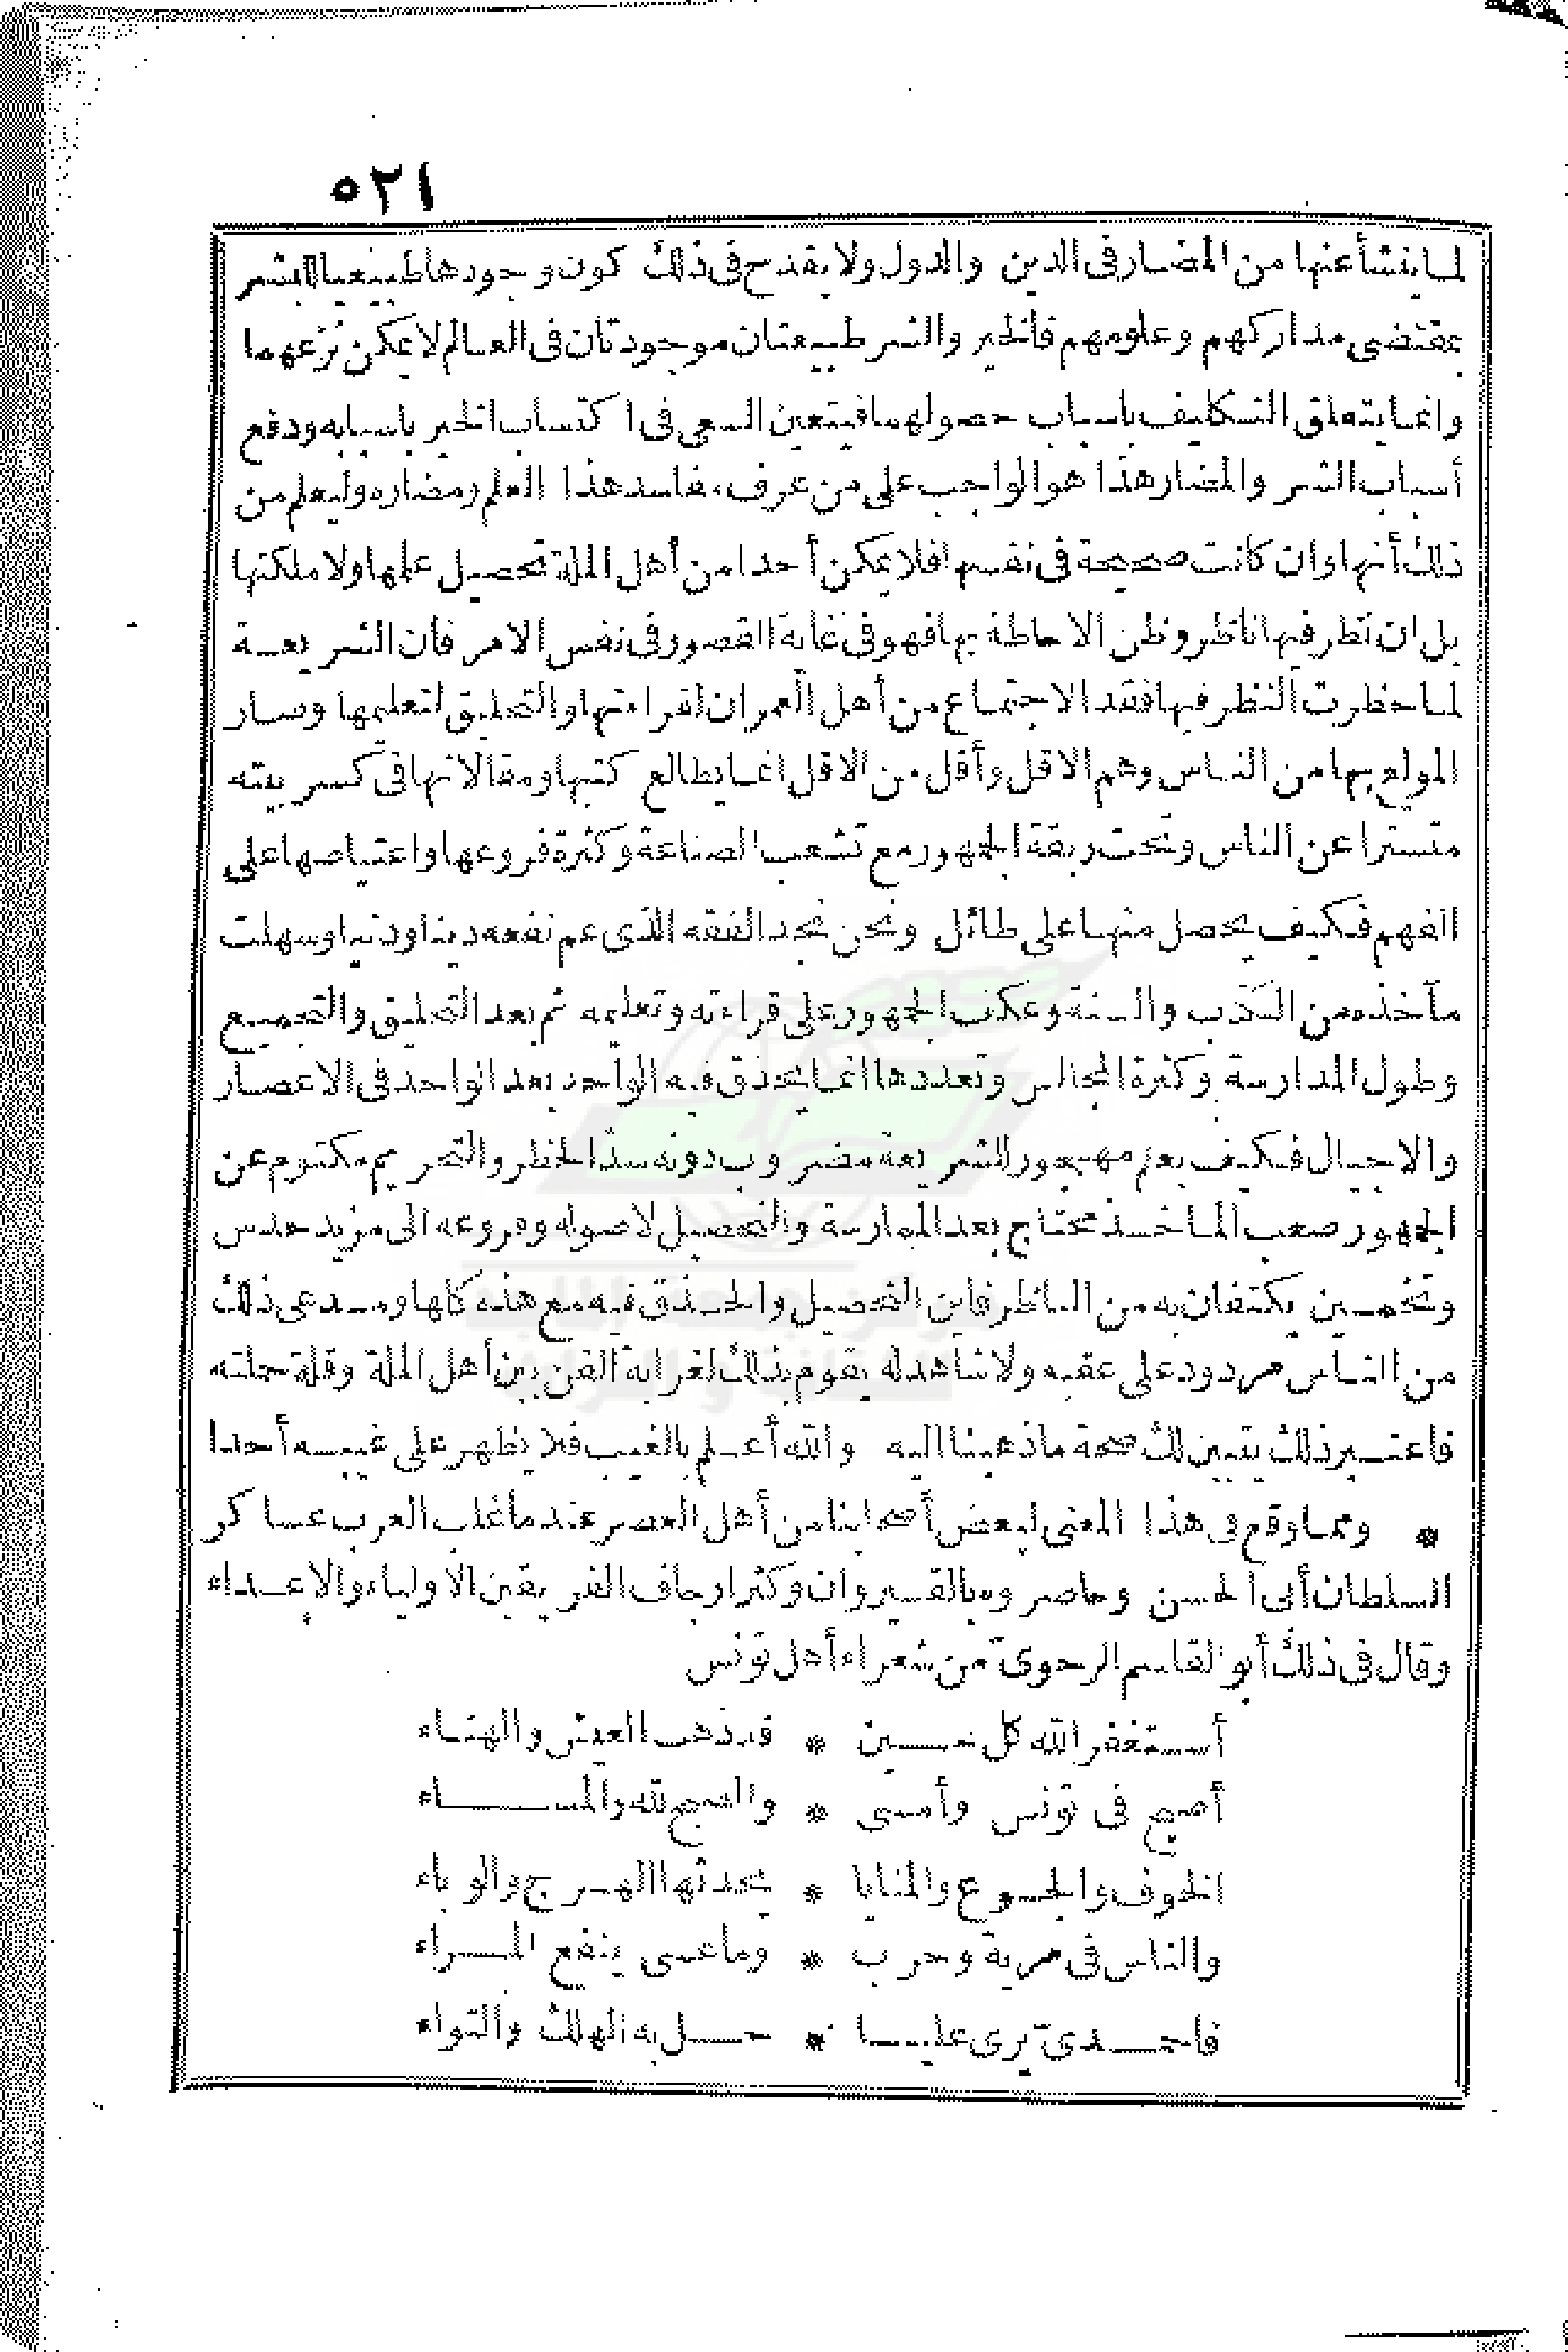 ٥٢١
لما ينشأ عنها من المضار فى الدين والدول ولا يقدح فى ذلك كون وجودها طبيعيا للبشر
بمقتضى مداركهم وعلومهم فالخير والشر طبيعتان موجودتان فى العالم لا يمكن نزعهما
وانما يتعلق التكليف باسباب حصولهما فيتعين السعى فى اكتساب الخير باسبابه ودفع
أسباب الشر والمضار هذا هو الواجب على من عرف مفاسد هذا العلم ومضاره وليعلم من
ذلك أنها وان كانت صحيحة فى نفسها فلا يمكن أحدا من أهل الملة تحصيل علمها ولا ملكتها
بل ان نظر فيها ناظر وظن الاحاطة بها فهو فى غاية القصور فى نفس الامر فان الشريعة
لما حظرت النظر فيها فقد الاجتماع من أهل العمران لقراءتها والتحليق لتعليمها وصار
المولع بها من الناس وهم الاقل وأقل من الاقل انما يطالع كتبها ومقالاتها فى كسر بيته
متسترا عن الناس وتحت ربقة الجمهور مع تشعب الصناعة وكثرة فروعها واعتياصها على
الفهم فكيف يحصل منها على طائل ونحن نجد الفقه الذى عم نفعه دينا ودنيا وسهلت
مآخذه من الكتاب والسنة وعكف الجمهور على قراءته وتعليمه ثم بعد التحليق والتجميع
وطول المدارسة وكثرة المجالس وتعددها انما يحذق فيه الواحد بعد الواحد فى الاعصار
والاجيال فكيف بعلم مهجور للشريعة مضروب دونه سدّ الحظر والتحريم مكتوم عن
الجمهور صعب المآخذ محتاج بعد الممارسة والتحصيل لاصوله وفروعه الى مزيد حدس
وتخمين يكتنفان به من الناظر فاين التحصيل والحذق فيه مع هذه كلها ومدعى ذلك
من الناس مردود على عقبه ولا شاهد له يقوم بذلك لغرابة الفن بين أهل الملة وقلة حملته
فاعتبر ذلك يتبين لك صحة ما ذهبنا اليه والله أعلم بالغيب فلا يظهر على غيبه أحدا
* ومما وقع فى هذا المعنى لبعض أصحابنا من أهل العصر عند ما غلب العرب عساكر
السلطان أبى الحسن وحاصروه بالقيروان وكثر ارجاف الفريقين الاولياء والاعداء
وقال فى ذلك أبو القاسم الرحوىّ من شعراء أهل تونس
أستغفر الله كل حين * قد ذهب العيش والهناء
أصبح فى تونس وأمسى * والصبح لله والمساء
الخوف والجوع والمنايا * يحدثها الهرج والوباء
والناس فى مرية وحرب * وما عسى ينفع المراء
فاحمدىّ يرى عليا * حل به الهلك والتواء